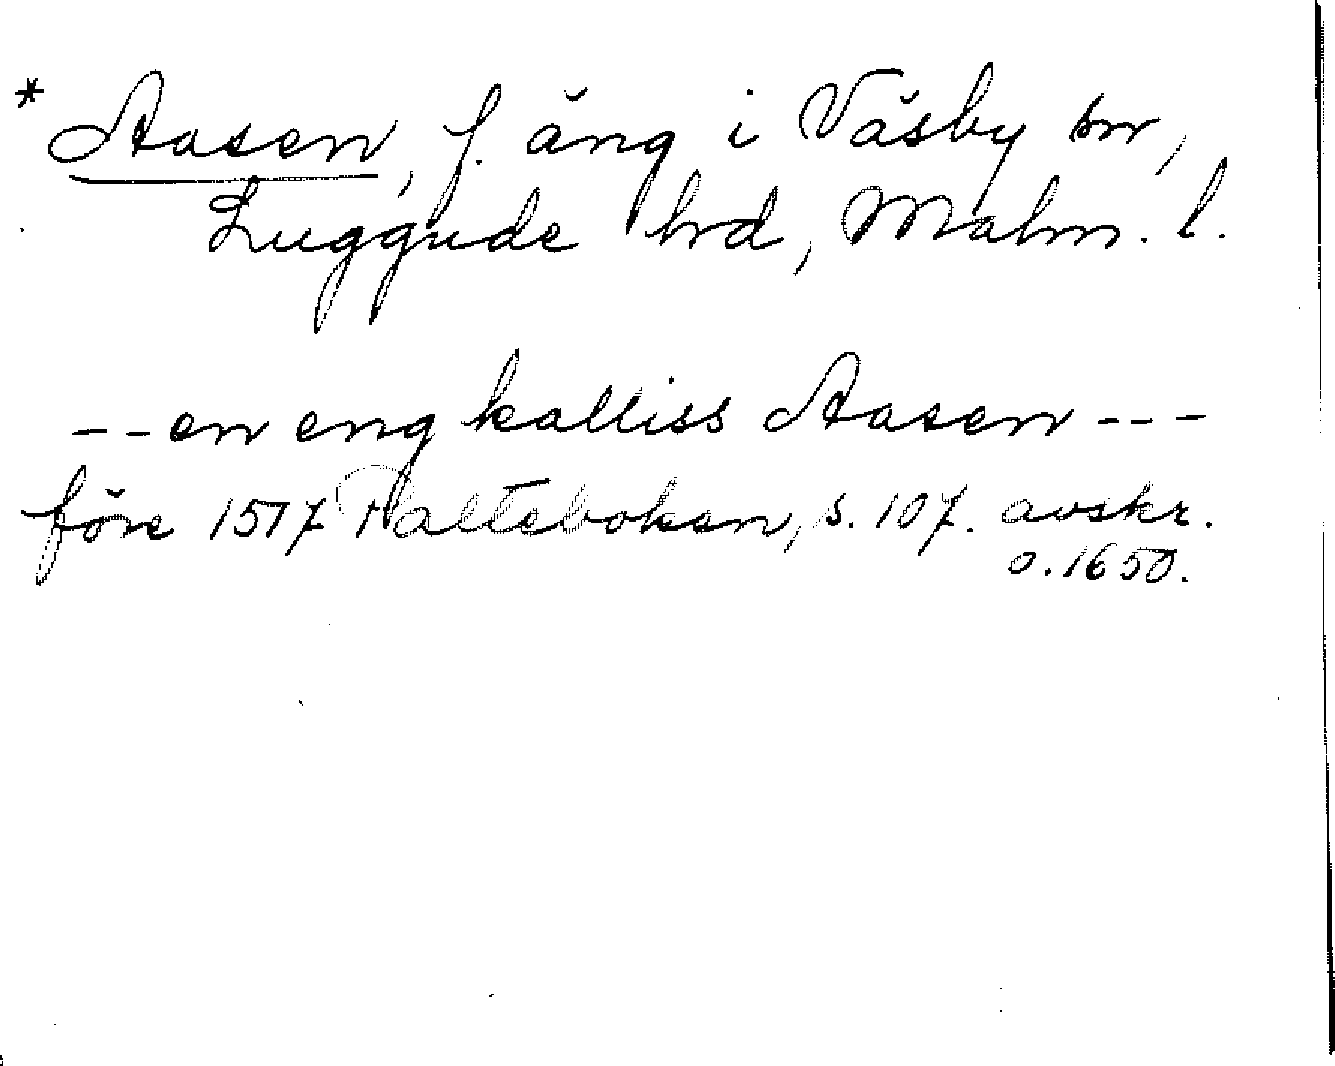 * Aasen, f. äng i Väsby sn,
Luggude hd, Malm. l.
--en eng kalliss Aasen---
före 1517 Palteboken, s. 107. avskr.
o. 1650.